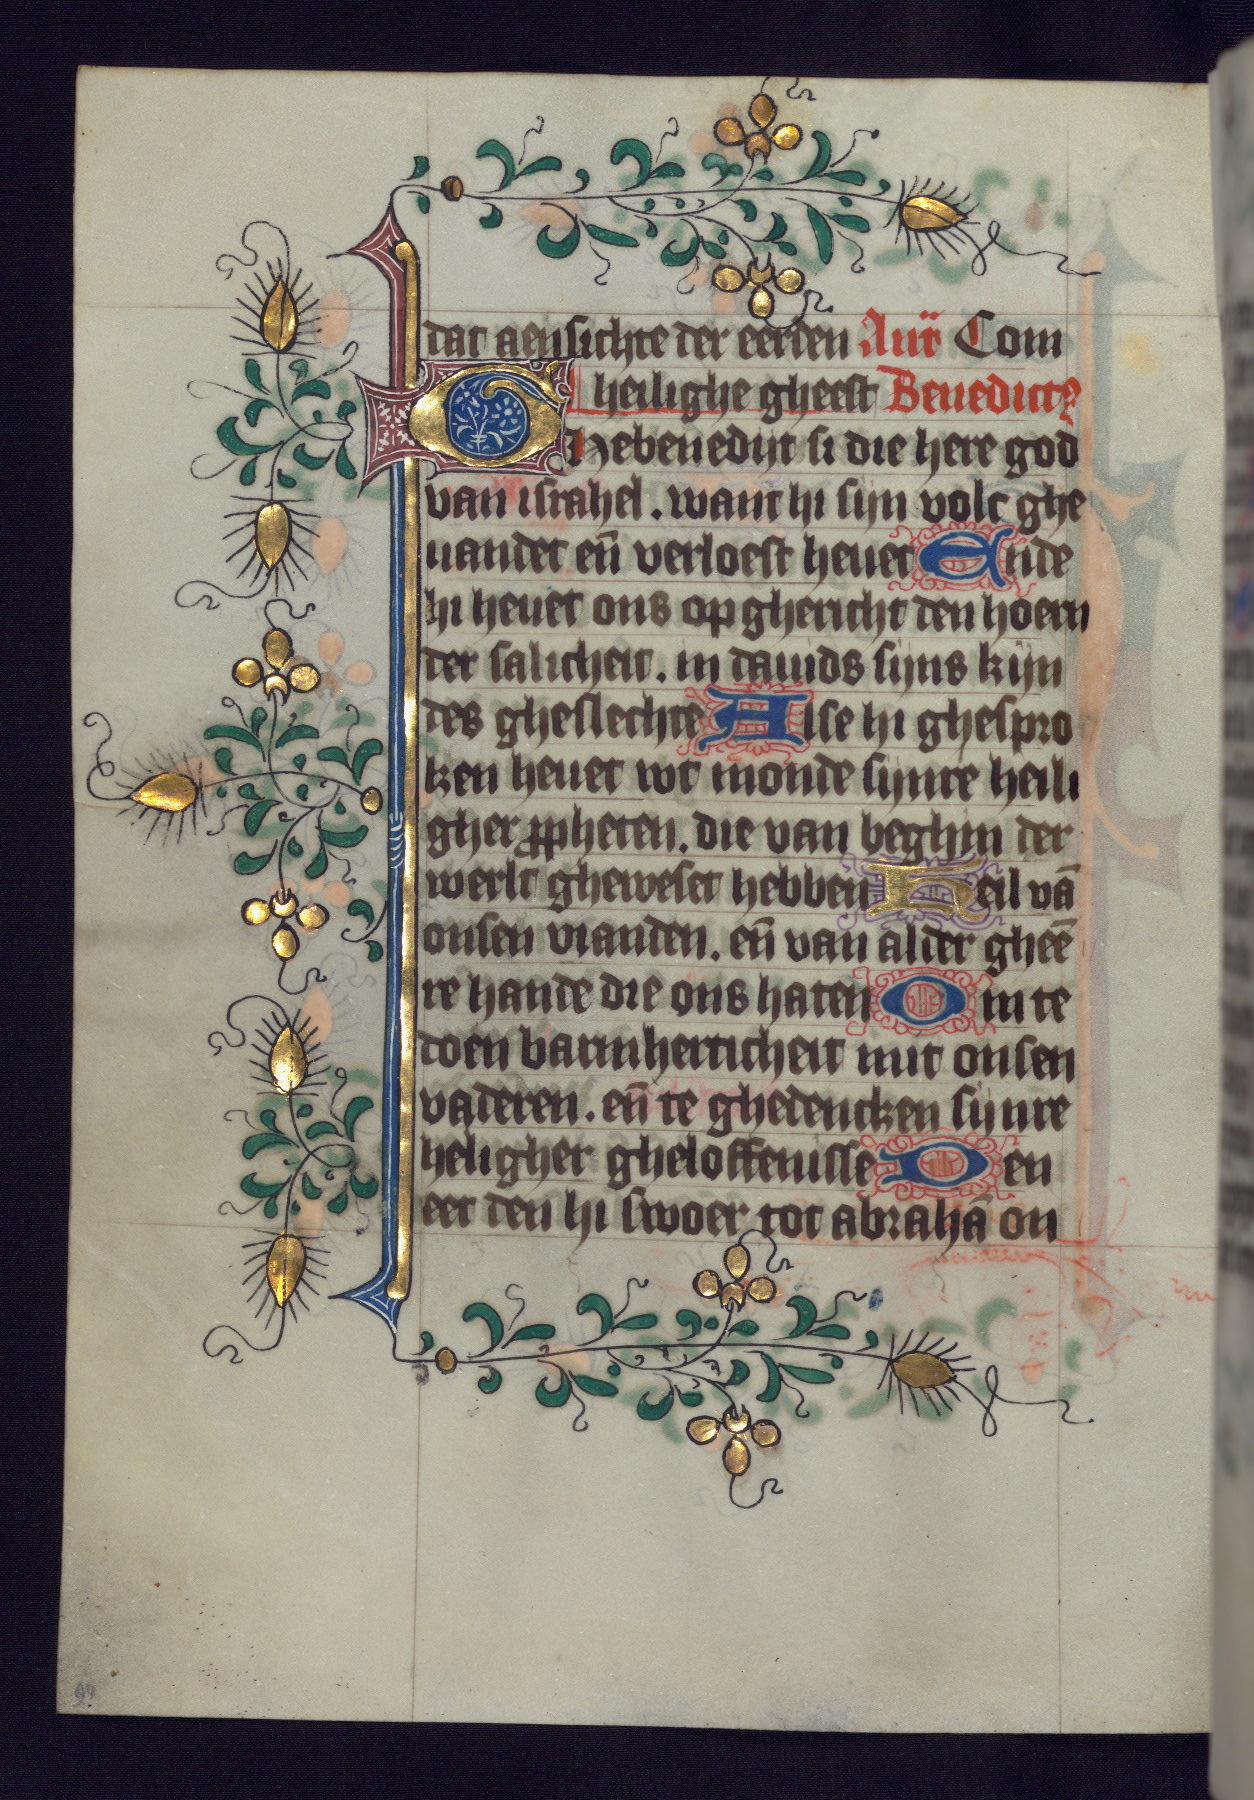 dat aensichte der eerden Aur̄ Com
heilighe gheest Benedictꝰ
Ghebenedijt si die here god
van israhel. want hi sijn volc ghe
uandet en̄ verloest heuet Ande
hi heuet ons op ghericht den hoern
der salicheit. in dauids sijns kijn
des gheslechte Alse hi ghespro
ken heuet wt monde sijnre heili
gher ꝓpheten. die van beghin der
werlt gheweset hebben Heil vā
onsen vianden. en̄ van alder gheē
re hande die ons haten Om te
doen barmherticheit mit onsen
vaderen. en̄ te ghedencken sijnre
heligher gheloffenisse Den
eet den hi swoer tot abrahā on
94